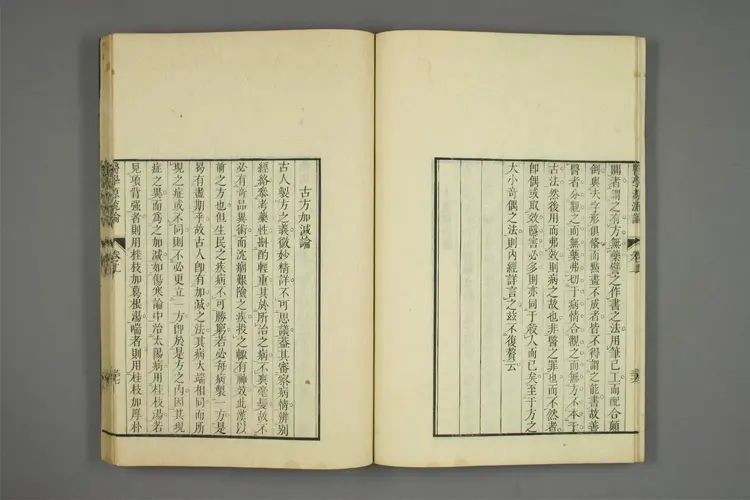 醫學源流論 卷上
關者謂之有方無藥譬之作書之法用筆已工而配合顛
倒與夫字形俱備而點畫不成者皆不得謂之能書故善
醫者分觀之而無藥弗切于病情合觀之而無方不本于
古法然後用而弗效則病之故也非醫之罪也而不然者
卽偶或取效隱害必多則亦同于殺人而已矣至于方之
大小奇偶之法則內經詳言之茲不復贅云
古方加減論
古人製方之義微妙精詳不可思議葢其審察病情辨別
經絡參考藥性斟酌輕重其於所治之病不爽毫髮故不
必有奇品異術而沈痼艱險之疾投之輒有神效此漢以
前之方也但生民之疾病不可勝窮若必每病製一方是
曷有盡期乎故古人卽有加減之法其病大端相同而所
現之症或不同則不必更立一方卽於是方之內因其現
症之異而爲之加減如傷寒論中治太陽病用桂枝湯若
見項背强者則用桂枝加葛根湯喘者則用桂枝加厚朴
醫學源流論 卷上